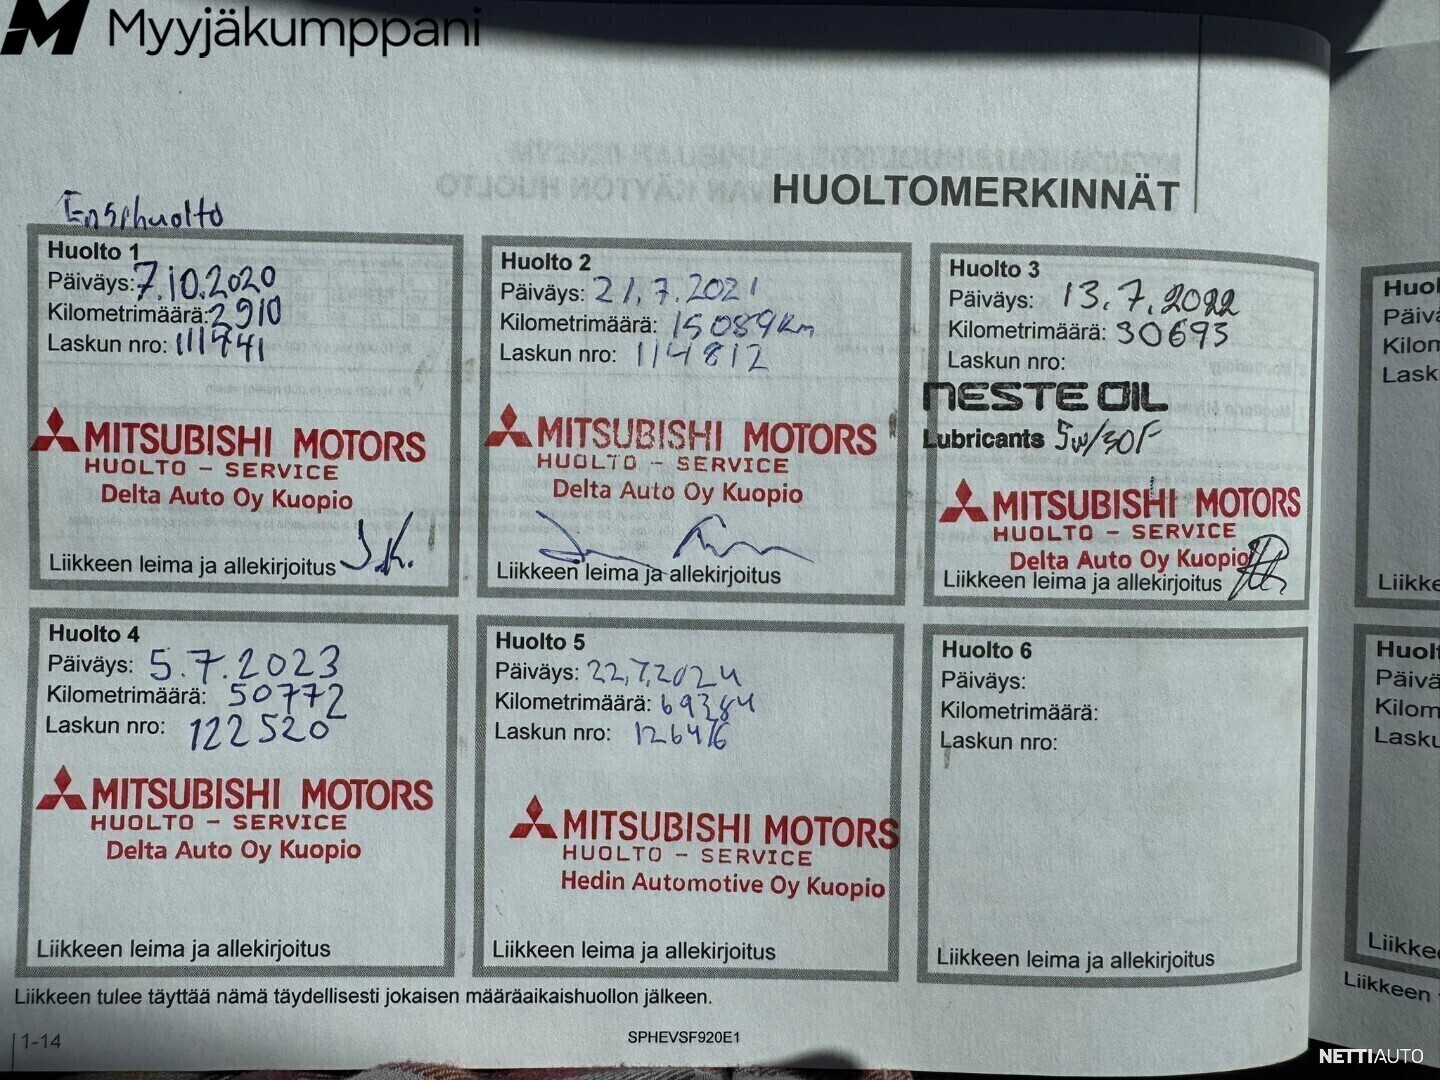 Myyjäkumppani
HUOLTOMERKINNÄT
Ensihuolto
Huolto 1
Päiväys: 7.10.2020
Kilometrimäärä: 2910
Laskun nro: 111741
MITSUBISHI MOTORS
HUOLTO - SERVICE
Delta Auto Oy Kuopio
Liikkeen leima ja allekirjoitus J.K.
Huolto 2
Päiväys: 21.7.2021
Kilometrimäärä: 15089km
Laskun nro: 114812
MITSUBISHI MOTORS
HUOLTO - SERVICE
Delta Auto Oy Kuopio
Liikkeen leima ja allekirjoitus
Huolto 3
Päiväys: 13.7.2022
Kilometrimäärä: 30693
Laskun nro:
NESTE OIL
Lubricants 5w/30F
MITSUBISHI MOTORS
HUOLTO - SERVICE
Delta Auto Oy Kuopio
Liikkeen leima ja allekirjoitus
Huolto 4
Päiväys: 5.7.2023
Kilometrimäärä: 50772
Laskun nro: 122520
MITSUBISHI MOTORS
HUOLTO - SERVICE
Delta Auto Oy Kuopio
Liikkeen leima ja allekirjoitus
Huolto 5
Päiväys: 22.7.2024
Kilometrimäärä: 69384
Laskun nro: 126476
MITSUBISHI MOTORS
HUOLTO - SERVICE
Hedin Automotive Oy Kuopio
Liikkeen leima ja allekirjoitus
Huolto 6
Päiväys:
Kilometrimäärä:
Laskun nro:
Liikkeen leima ja allekirjoitus
Liikkeen tulee täyttää nämä täydellisesti jokaisen määräaikaishuollon jälkeen.
1-14
SPHEVSF920E1
Huol
Päivä
Kilom
Lask
Liikke
Huolt
Päivä
Kilom
Lasku
Liikke
Liikkeen
NETTIAUTO